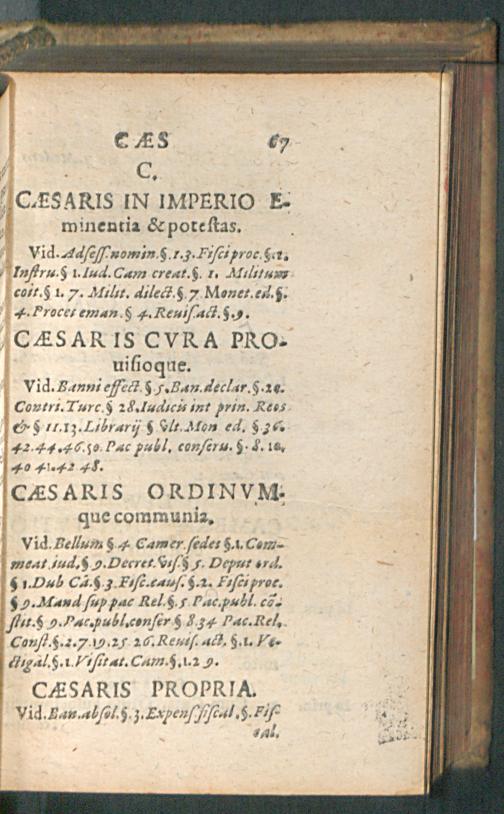 CÆS 67
C.
CÆSARIS IN IMPERIO E-
minentia & potestas.
Vid. Adsess. nomin. §. 1. 3. Fisci proc. §. 2.
Instru. § 1. Iud. Cam creat. §. 1. Militum
coit. § 1. 7. Milit. dilect. §. 7 Monet. ed. §.
4. Proces eman. § 4. Reuis. act. §. 9.
CÆSARIS CVRA PRO-
uisioque.
Vid. Banni effect. § 5. Ban. declar. §. 20.
Contri. Turc. § 28. Iudicii int prin. Reos
& § 11. 13. Librarij § Vlt. Mon ed. § 36.
42. 44. 46. 50. Pac publ. conseru. §. 8. 10.
40 41. 42 48.
CÆSARIS ORDINVM-
que communia.
Vid. Bellum § 4 Camer. sedes §. 1. Com-
meat. iud. § 9. Decret. Vis. § 5. Deput ord.
§ 1. Dub Cā. § 3. Fisc. caus. § 2. Fisci proc.
§ 9. Mand sup. pac Rel. § 5 Pac. publ. cō-
stit. § 9. Pac. publ. conser § 8 34 Pac. Rel.
Const. §. 2. 7. 19. 25 26. Reuis. act. §. 1. Ve-
ctigal. §. 1. Visitat. Cam. §. 1. 2 9.
CÆSARIS PROPRIA.
Vid. Ban. absol. §. 3. Expens fiscal. §. Fis-
cal.